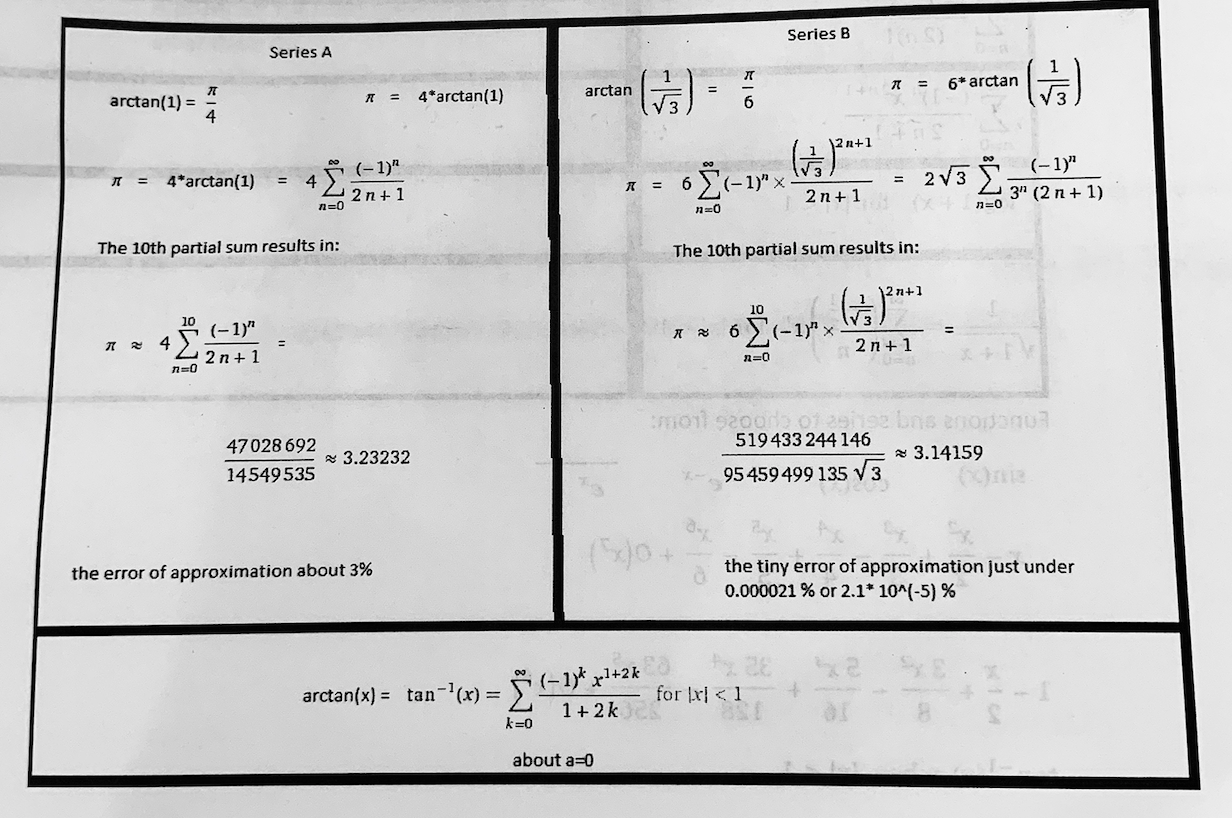 Series A
arctan(1) = π/4 π = 4*arctan(1)
π = 4*arctan(1) = 4 ∑_{n=0}^{∞} (-1)^n / (2 n + 1)
The 10th partial sum results in:
π ≈ 4 ∑_{n=0}^{10} (-1)^n / (2 n + 1) =
47 028 692 / 14 549 535 ≈ 3.23232
the error of approximation about 3%
Series B
arctan (1/√3) = π/6 π = 6*arctan (1/√3)
π = 6 ∑_{n=0}^{∞} (-1)^n × (1/√3)^{2 n+1} / (2 n + 1) = 2 √3 ∑_{n=0}^{∞} (-1)^n / (3^n (2 n + 1))
The 10th partial sum results in:
π ≈ 6 ∑_{n=0}^{10} (-1)^n × (1/√3)^{2 n+1} / (2 n + 1) =
519 433 244 146 / (95 459 499 135 √3) ≈ 3.14159
the tiny error of approximation just under
0.000021 % or 2.1* 10^(-5) %
arctan(x) = tan^{-1}(x) = ∑_{k=0}^{∞} (-1)^k x^{1+2k} / (1 + 2 k) for |x| < 1
about a=0